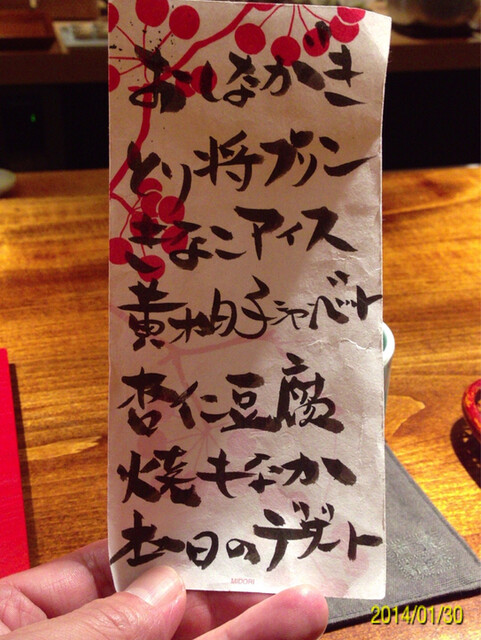 おしながき
とり将プリン
きなこアイス
黄柚子シャーベット
杏仁豆腐
焼もなか
本日のデザート
MIDORI
2014/01/30